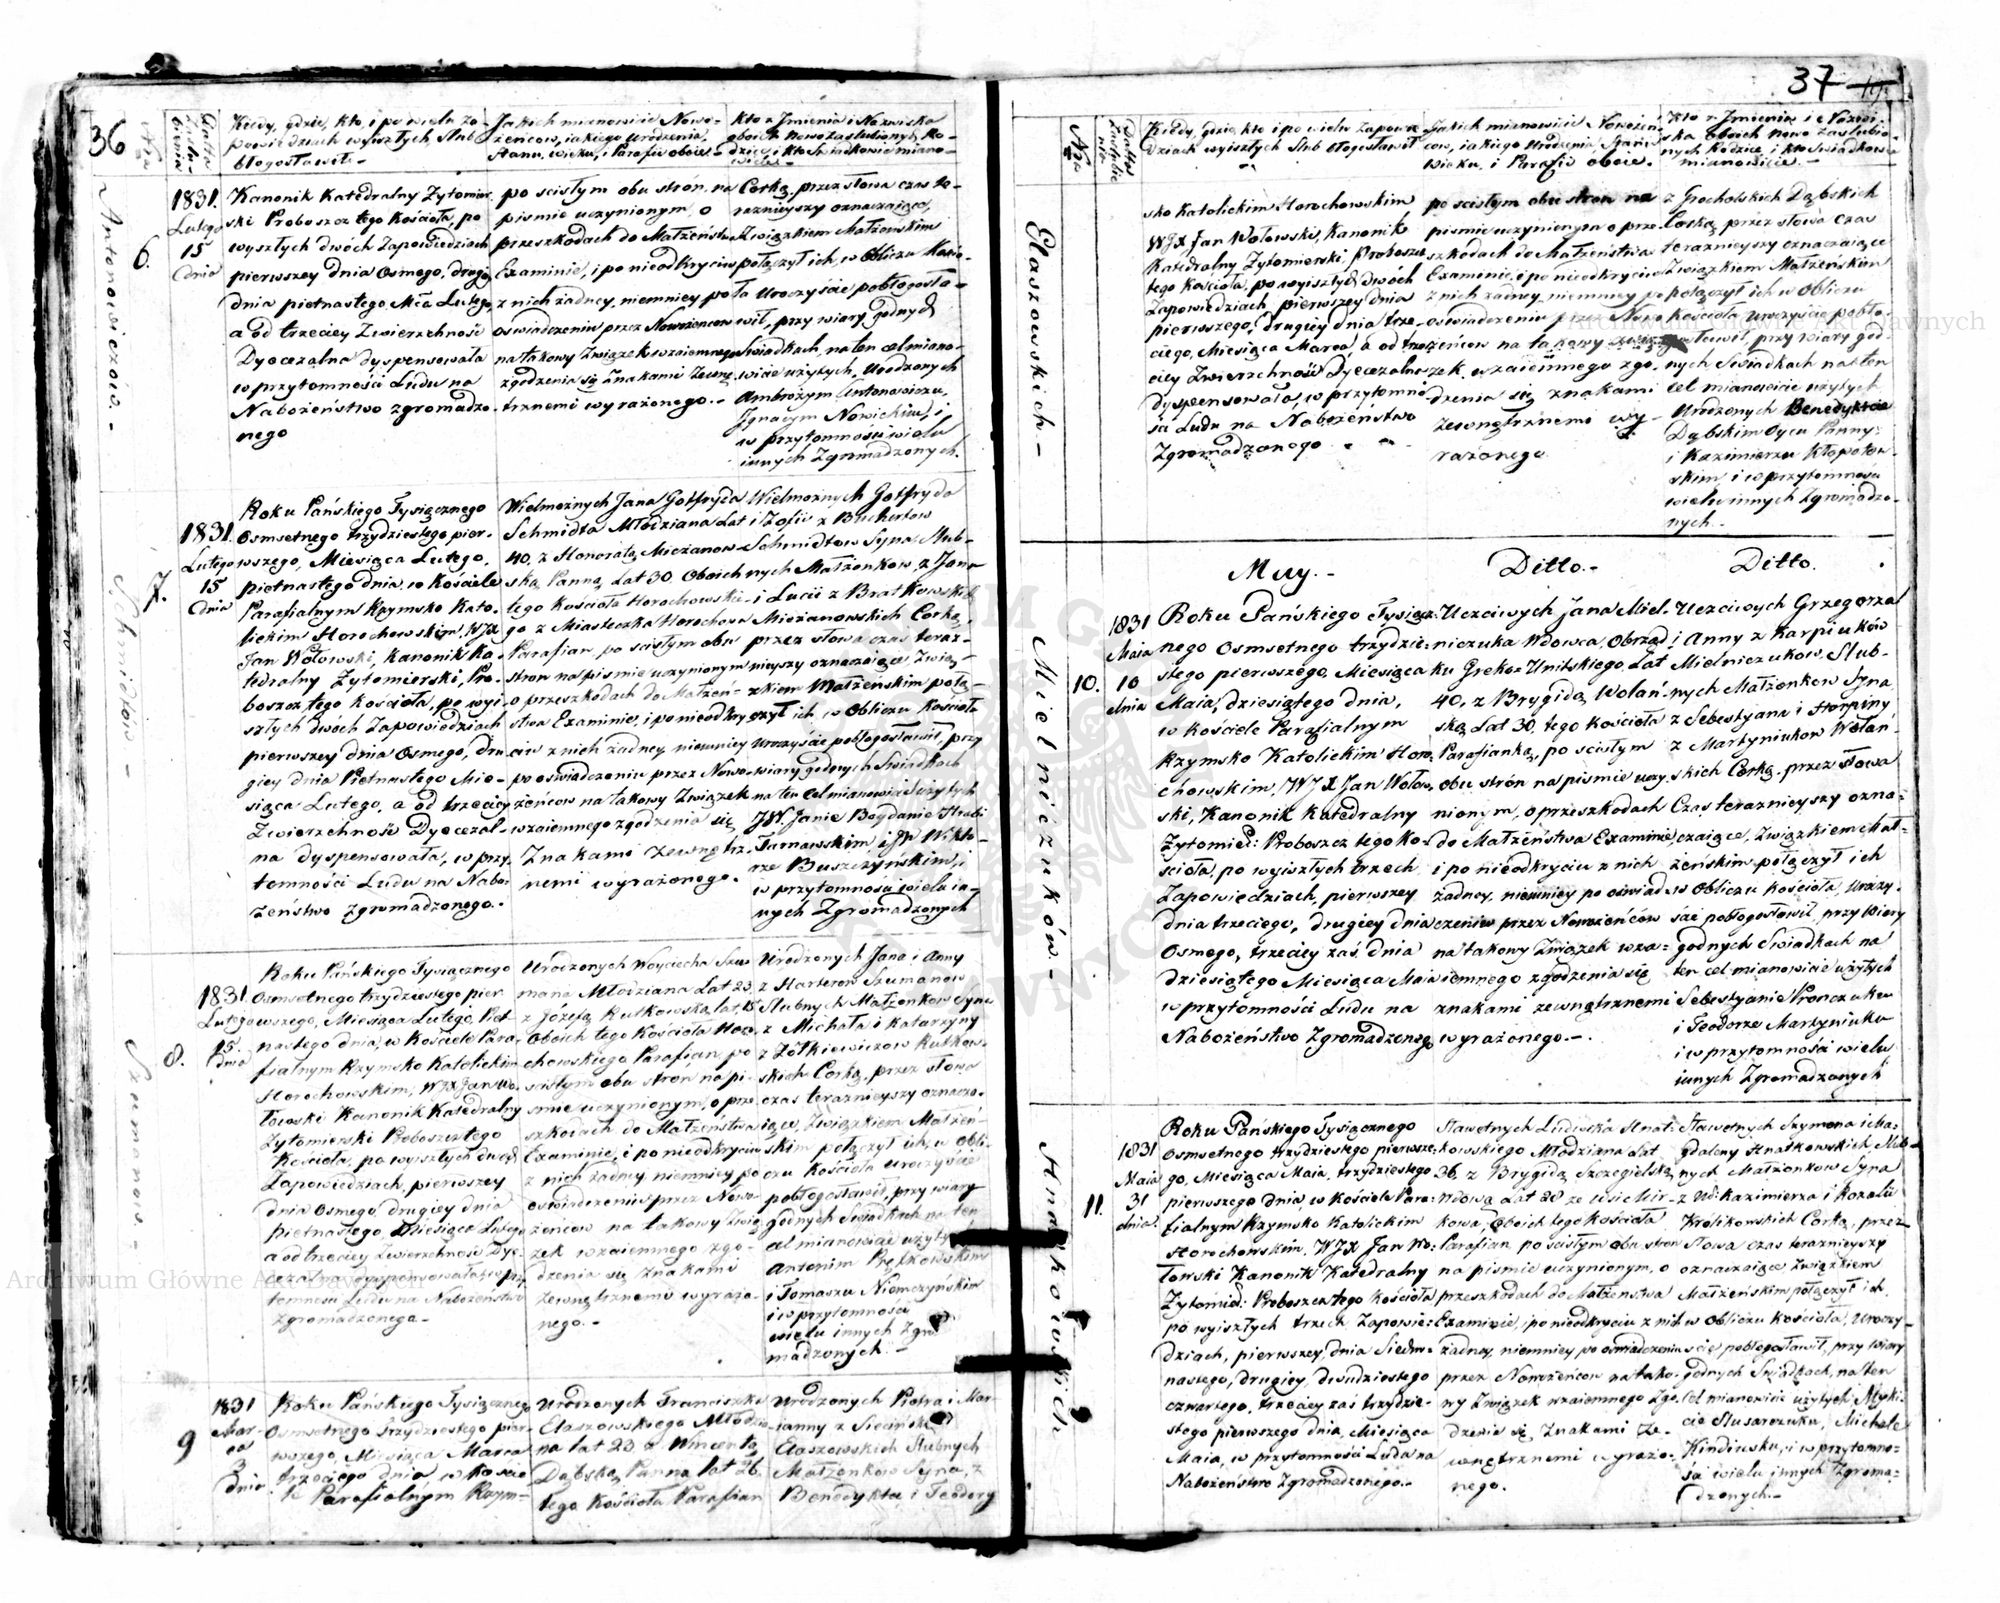 36
Nro
Datta Zaślubienia
Kiedy, gdzie, kto, i po wielu Za-
powiedziach wyszłych, Ślub
błogosławił.-
Jakich mianowicie Nowo-
żeńcow, iakiego urodzenia,
Stanu, wieku, i Parafii oboie.-
Kto z Jmienia i Nazwiska
oboich Nowozaślubionych, Ro-
dzice, i kto Świadkowie miano-
wicie.-
Antonowiczów.-
6.
1831.
Lutego
15
dnia
Kanonik Katedralny Żytomier-
ski Proboszcz tego Kościoła, po
wyszłych dwóch Zapowiedziach
pierwszey dnia Osmego, drugiey
dnia piętnastego Mca Lutego,
a od trzeciey Zwierzchność
Dyecezalna dyspensowała
w przytomności Ludu na
Nabożeństwo zgromadzo-
nego
po scisłym obu strón, na
pismie uczynionym, o
przeszkodach do Małżeństwa
Examinie, i po nieodkryciu
z nich żadney, niemniey po
oświadczeniu przez Nowożeńcow
na takowy Związek wzaiemnego
zgodzenia się Znakami zewnę-
trznemi wyrażonego.-
Corkę, przez słowa czas te-
raznieyszy oznaczaiące,
Związkiem Małżenskim
połączył ich, w Obliczu Kościo-
ła Uroczyscie pobłogosła-
wił, przy wiary godnych
Swiadkach, na ten cel miano-
wicie użytych, Urodzonych
Ambrożym Antonowiczu,
Jgnacym Nowickim, i
w przytomności wielu
innych Zgromadzonych.
Schmidtow.-
7.
1831.
Lutego
15
dnia
Roku Pańskiego Tysiącznego
Osmsetnego trzydziestego pier-
wszego, Miesiąca Lutego,
piętnastego dnia, w Kościele
Parafialnym Rzymsko Kato-
lickim Horochowskim, WJX
Jan Wołowski, Kanonik Ka-
tedralny Żytomierski, Pro-
boszcz tego Kościoła, po wyi-
szłych dwóch Zapowiedziach
pierwszey dnia Osmego, dru-
giey dnia Piętnastego Mie-
siąca Lutego, a od trzeciey
Zwierzchność Dyecezal-
na dyspensowała, w przy-
tomności Ludu na Nabo-
żeństwo zgromadzonego.-
Wielmożnych Jana Gotfryda
Schmidta Młodziana Lat
40, z Honoratą Mieżanow-
ską, Panną, Lat 30. Oboich
tego Kościoła Horochowskie-
go z Miasteczka Horochowa
Parafian, po scisłym obu
stron na pismie uczynionym
o przeszkodach do Małżeń-
stwa Examinie, i po nieodkry-
ciu z nich żadney, niemniey
po oswiadczeniu przez Nowo-
żeńcow na takowy Związek
wzaiemnego zgodzenia się
Znakami zewnętrz-
nemi wyrażonego.
Wielmożnych Gotfryda
i Zofii z Buchertow
Schmidtow Syna, Ślub-
nych Małżonkow, z Jana
i Lucii z Bratkowskich
Mieżanowskich Corkę,
przez słowa czas teraz-
nieyszy oznaczaiące, Zwią-
zkiem Małżeńskim połą-
czył ich, w Obliczu Kościoła
Uroczyście pobłogosławił, przy
wiary godnych Świadkach
na ten cel mianowicie użytych
JW. Janie Bogdanie Hrabi
Tarnowskim, i JP. Wikto-
rze Buszczyńskim, i
w przytomności wielu in-
nych Zgromadzonych
Szumanow.-
8.
1831.
Lutego
15.
dnia
Roku Pańskiego Tysiącznego
Osmsetnego trzydziestego pier-
wszego, Miesiąca Lutego, Pięt-
nastego dnia, w Kościele Para-
fialnym Rzymsko Katolickim
Horochowskim, WJX Jan Wo-
łowski Kanonik Katedralny
Żytomierski Proboszcz tego
Kościoła, po wyszłych dwóch
Zapowiedziach, pierwszey
dnia Osmego, drugiey dnia
piętnastego, Miesiąca Lutego
a od trzeciey Zwierzchność Dye-
cezalna dyspensowała, w przy-
tomności Ludu na Nabożeństwo
Zgromadzonego.-
Urodzonych Woyciecha Szu-
mana Młodziana Lat 23,
z Józefą Rutkowską, lat, 18
Oboich tego Kościoła Horo-
chowskiego Parafian, po
scisłym obu strón na pi-
smie uczynionym, o prze-
szkodach do Małżeństwa
Examinie, i po nieodkryciu
z nich żadney, niemniey po
oswiadczeniu przez Nowo-
żeńcow na takowy Zwią-
zek wzaiemnego zgo-
dzenia się Znakami
Zewnętrznemi wyrażo-
nego.-
Urodzonych Jana i Anny
z Harterow Szumanow
Ślubnych Małżonkow Syna
z Michała i Katarzyny
z Żółkiewiczow Rutkow-
skich Corkę, przez słowa
czas teraznieyszy oznacza-
iące, Związkiem Małżeń-
skim połączył ich, w Obli-
czu Kościoła uroczyście
pobłogosławił, przy wiary
godnych Świadkach na ten
cel mianowicie użytych
Antonim Prętkowskim
i Tomaszu Niemczyńskim
i w przytomności
wielu innych Zgro-
madzonych.-
9
1831
Mar-
ca
3
dnia
Roku Pańskiego Tysiącznego
Osmsetnego Trzydziestego pier-
wszego, Miesiąca Marca
trzeciego dnia, w Koscie-
le Parafialnym Rzym-
Urodzonych Franciszka
Elaszowskiego Młodzia-
na lat 23 z Wincentą
Dąbską Panną lat 26.
tego Kościoła Parafian
Urodzonych Piotra i Mar-
ianny z Siecińskich
Elaszowskich Ślubnych
Małżonkow Syna, z
Benedykta i Teodory
37
Nro
Datta Zaślubienia
Kiedy, gdzie, kto i po wielu Zapowie-
dziach wyiszłych Ślub błogosławił
Jakich mianowicie Nowożeń-
cow, iakiego Urodzenia, Stanu
Wieku, i Parafii oboie.-
Kto z Jmienia i Nazwi-
ska oboich Nowo Zaślubio-
nych Rodzice, i kto Świadkowie
mianowicie.-
Elaszowskich-
sko Katolickim Horochowskim
WJX Jan Wołowski, Kanonik
Katedralny Żytomierski, Proboszcz
tego Kościoła, po wyiszłych dwóch
Zapowiedziach pierwszey dnia
pierwszego, drugiey dnia trze-
ciego, Miesiąca Marca, a od trze-
ciey Zwierzchność Dyecezalna
dyspensowała, w przytomno-
ści Ludu na Nabożeństwo
Zgromadzonego
po scisłym obu stron na
pismie uczynionym o prze-
szkodach do Małżeństwa
Examinie, i po nieodkryciu
z nich żadney, niemniey po
oświadczeniu przez Nowo-
żeńcow na takowy zwią-
zek wzaiemnego zgo-
dzenia się znakami
zewnętrznemi wy-
rażonego
z Grocholskich Dąbskich
Corkę, przez słowa czas
teraznieyszy oznaczaiące
Związkiem Małżeńskim
połączył ich w Obliczu
Kościoła Uroczyście pobło-
gosławił, przy wiary god-
nych Świadkach na ten
cel mianowicie użytych
Urodzonych Benedykcie
Dąbskim Oycu Panny:
i Kazimierzu Kłopotow-
skim, i w przytomności
wielu innych Zgromadzo-
nych.-
May.-
Ditto.-
Ditto.
Mielniczuków.-
10.
1831
Maia
10
dnia
Roku Pańskiego Tysiącz-
nego Osmsetnego trzydzie-
stego pierwszego, Miesiąca
Maia, dziesiątego dnia,
w Kościele Parafialnym
Rzymsko Katolickim Horo-
chowskim, WJX Jan Wołow-
ski, Kanonik Katedralny
Żytomier: Proboszcz tego Ko-
ścioła, po wyiszłych trzech
Zapowiedziach, pierwszey
dnia trzeciego, drugiey dnia
Osmego, trzeciey zaś dnia
dziesiątego Miesiąca Maia
w przytomności Ludu na
Nabożeństwo Zgromadzonego
Uczciwych Jana Miel-
niczuka Wdowca, Obrząd-
ku Greko-Unitskiego, Lat
40, z Brygidą Wolań-
ską Lat 30, tego Kościoła
Parafianką, po scisłym
obu strón na pismie uczy-
nionym, o przeszkodach
do Małżeństwa Examinie,
i po nieodkryciu z nich
żadney, niemniey po oświad-
czeniu przez Nowożeńców
na takowy Związek wza-
iemnego zgodzenia się
znakami zewnętrznemi
wyrażonego.-
Uczciwych Grzegorza
i Anny z Karpiuków
Mielniczukow, Ślub-
nych Małżonkow Syna,
z Sebestyana i Horpiny
z Martyniukow Wolań-
skich Corkę, przez słowa
Czas teraznieyszy ozna-
czaiące, Związkiem Mał-
żeńskim połączył ich
w Obliczu Kościoła, Uroczy-
ście pobłogosławił, przy Wiary
godnych Świadkach na
ten cel mianowicie użytych
Sebestyanie Pronczuku
i Teodorze Martyniuku
i w przytomności wielu
innych Zgromadzonych
Hnatkowskich
11.
1831
Maia
31
dnia.
Roku Pańskiego Tysiącznego
Osmsetnego trzydziestego pierwsze-
go, Miesiąca Maia, trzydziestego
pierwszego dnia, w Kościele Para-
fialnym Rzymsko Katolickim
Horochowskim, WJX Jan Wo-
łowski Kanonik Katedralny
Żytomier: Proboszcz tego Kościoła
po wyiszłych trzech Zapowie-
dziach, pierwszey, dnia Siedm-
nastego, drugiey, dwudziestego
czwartego, trzeciey zaś trzydzie-
stego pierwszego dnia, Miesiąca
Maia, w przytomności Ludu na
Nabożeństwo Zgromadzonego.-
Sławetnych Ludwika Hnat-
kowskiego Młodziana Lat
36, z Brygidą Szczegielską,
Wdową Lat 28 ze wsi Mir-
kowa, Oboich tego Kościoła
Parafian, po scisłym obu stron
na pismie uczynionym, o
przeszkodach do Małżeństwa
Examinie, i po nieodkryciu z nich
żadney, niemniey po oswiadczeniu
przez Nowożeńcow na tako-
wy Związek wzaiemnego Zgo-
dzenia się, Znakami Ze-
wnętrznemi wyrażo-
nego.
Sławetnych Szymona i Ma-
gdaleny Hnatkowskich, Ślub-
nych Małżonkow Syna
z Ur: Kazimierza i Rozalii
Królikowskich Corkę, przez
Słowa czas teraznieyszy
oznaczaiące Związkiem
Małżeńskim połączył ich,
w Obliczu Kościoła, Uroczy-
ście pobłogosławił, przy Wiary
godnych Świadkach, na ten
cel mianowicie użytych, Miki-
cie Slusarczuku, Michale
Kindiuku, i w przytomno-
ści wielu innych Zgroma-
dzonych.-
Archiwum Główne Akt Dawnych
Archiwum Główne Akt Dawnych